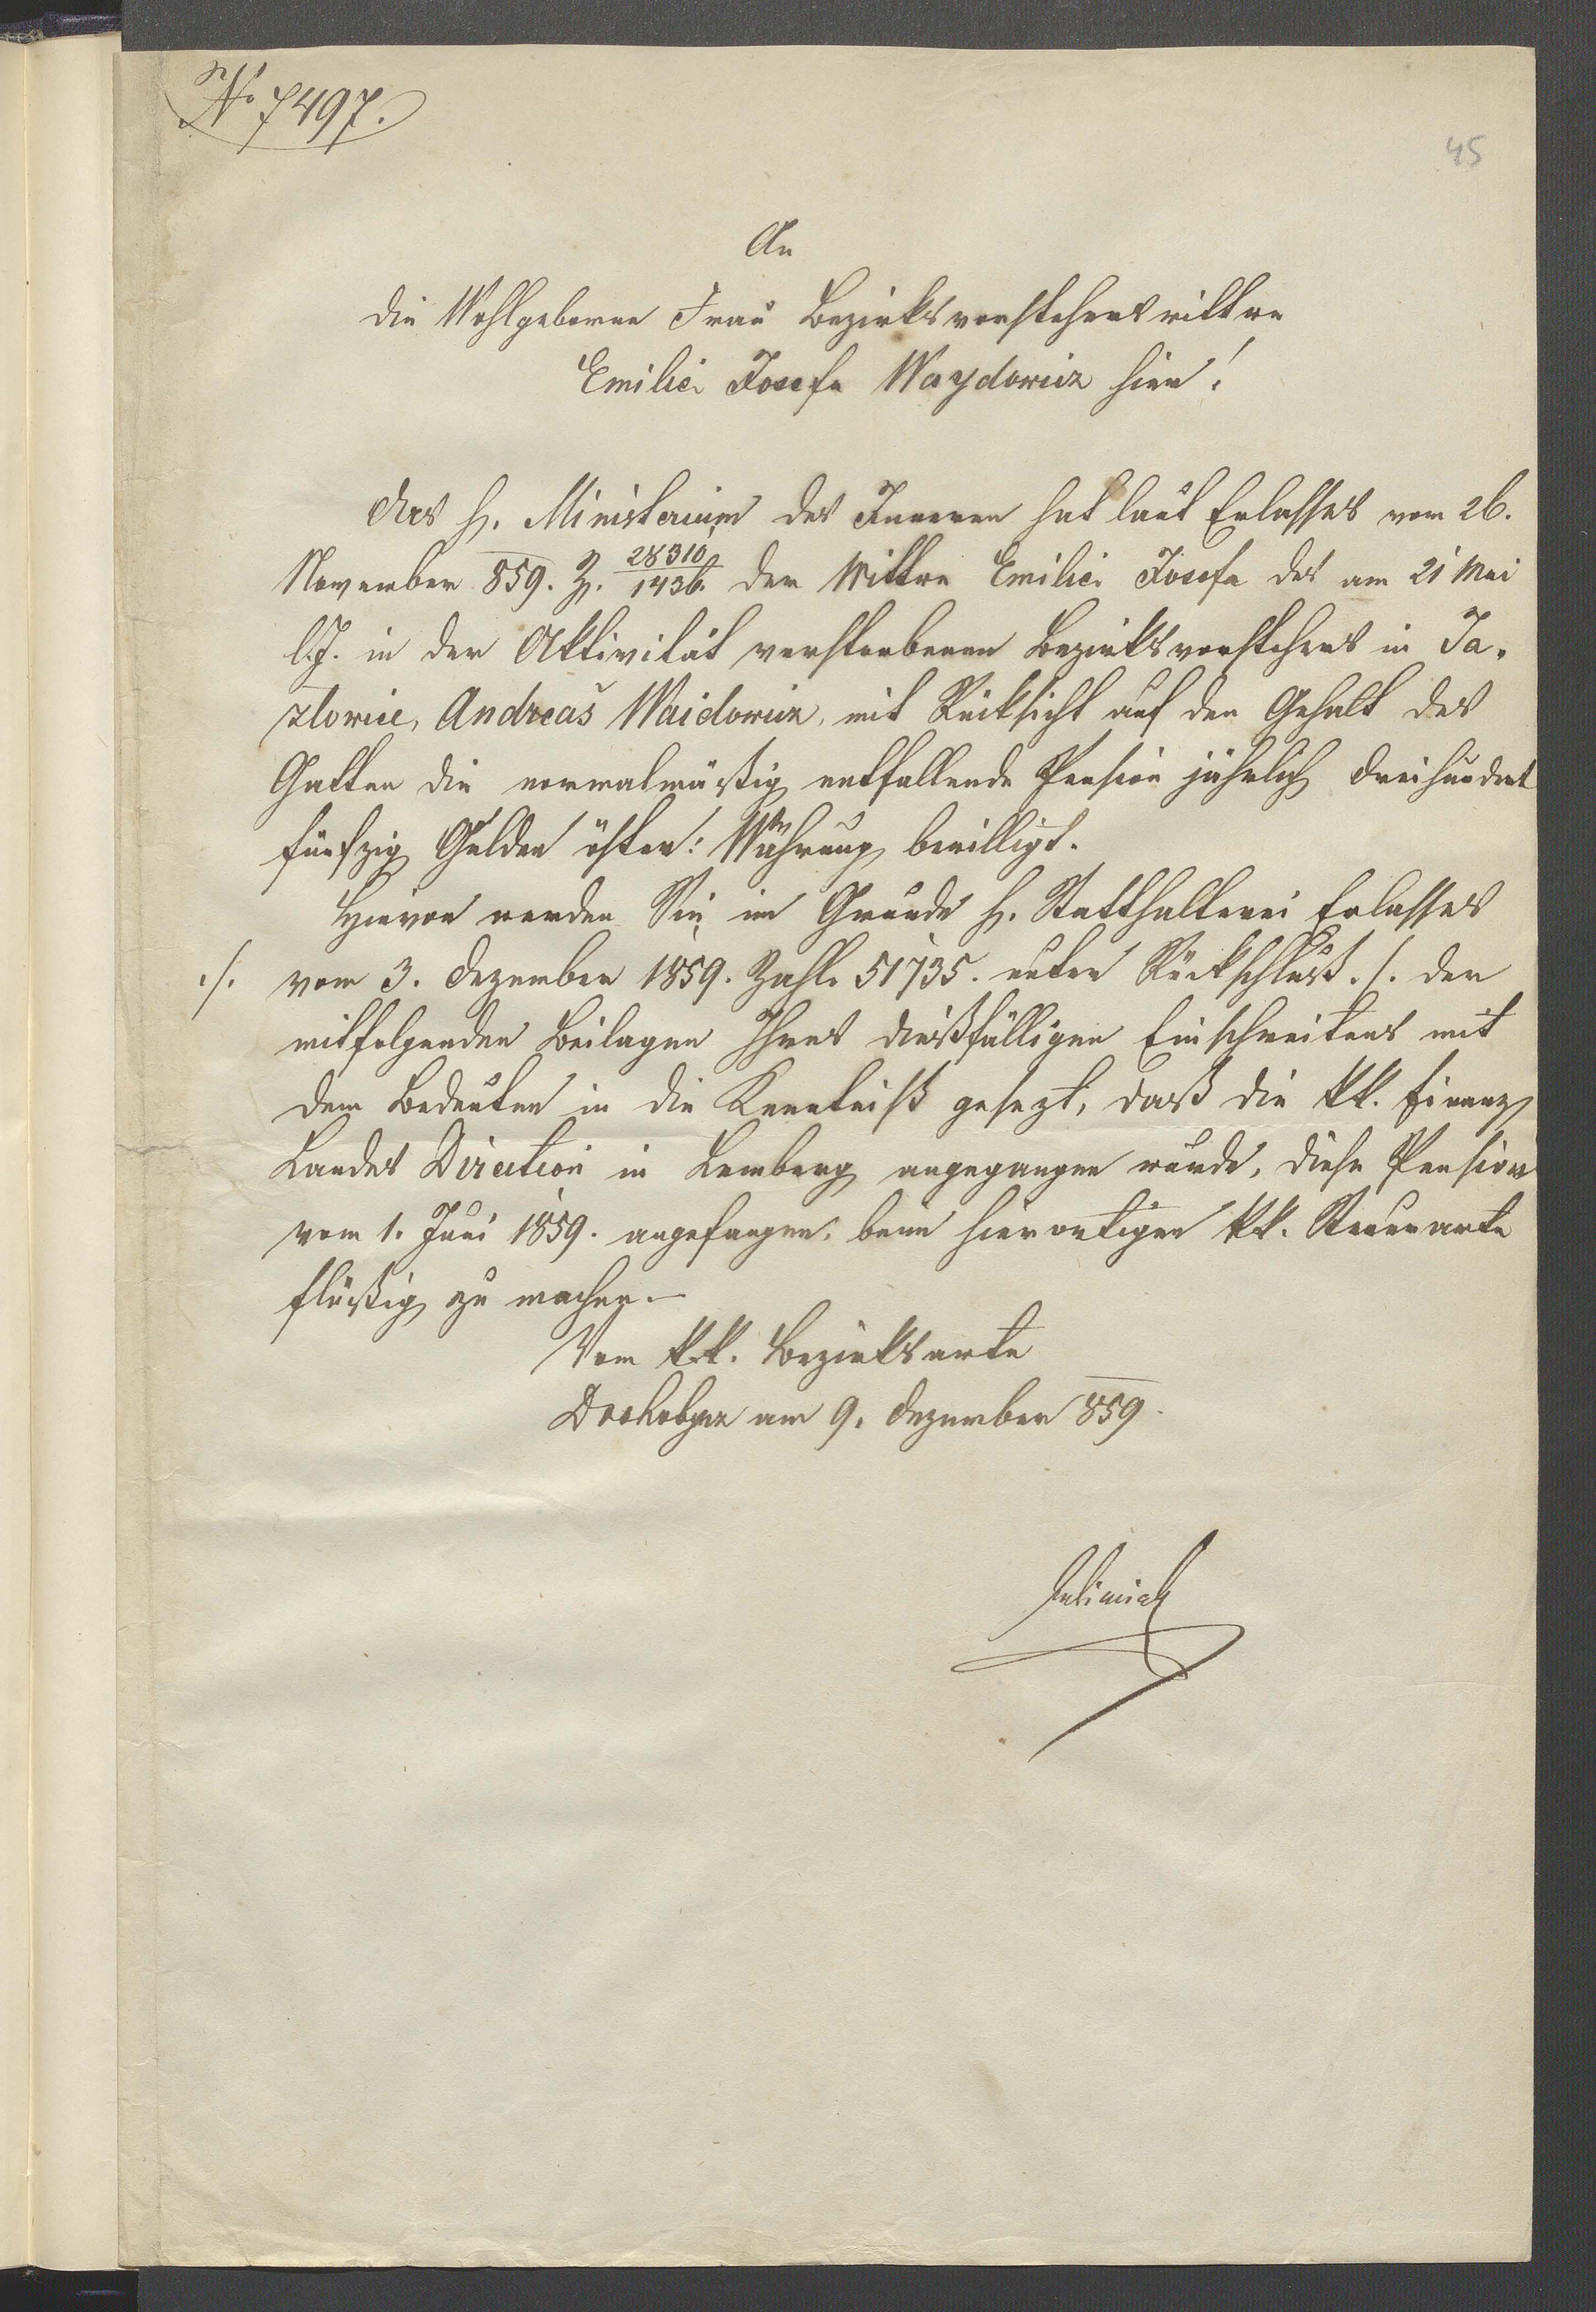 No 7497.
45
An
die Wohlgeborne Frau Bezirksvorstehers wittwe
Emilie Josefa Waydowicz hier!
Das h. Ministerium des Inneren hat laut Erlasses vom 26.
November 859. Z. 28310/1436. der Wittwe Emilie Josefa des am 21 Mai
l. J. in der Aktivität verstorbenen Bezirksvorstehers in Ja-
złowice, Andreas Waidowicz, mit Rücksicht auf den Gehalt des
Gatten die normalmäßig entfallende Pension jährlich dreihundert
fünfzig Gulden österr: Währung bewilligt.
Hievon werden Sie im Grunde h. Statthalterei Erlasses
./. vom 3. Dezember 1859. Zahl 51735. unter Rückschluß ./. der
mitfolgenden Beilagen Ihres dießfälligen Einschreitens mit
dem Bedeuten in die Kenntniß gesezt, daß die kk. Finanz
Landes Direction in Lemberg angegangen wurde, diese Pension
vom 1. Juni 1859. angefangen, beim hierortigen kk. Steueramte
flüßig zu machen.—
Vom k.k. Bezirksamte
Drohobycz am 9. Dezember 859.